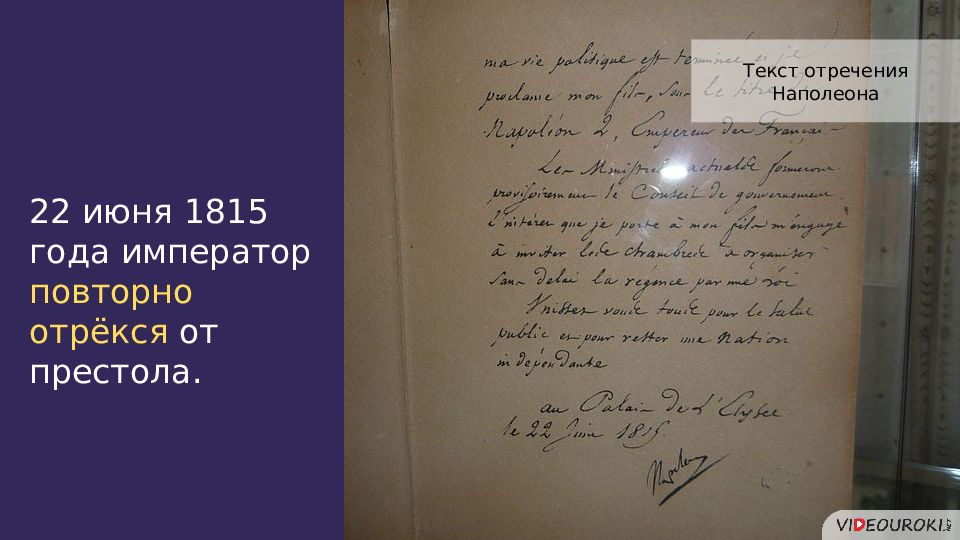 22 июня 1815
года император
повторно
отрёкся от
престола.
Текст отречения
Наполеона
ma vie politique est terminée et je
proclame mon fils, sous le titre
Napoléon 2, Empereur des Français
Les Ministres actuels formeront
provisoirement le Conseil de gouvernement.
L'intéret que je porte à mon fils m'engage
à inviter les chambres à organiser
sans delai la régence par une loi
Unissez vous tous pour le salut
public et pour rester une Nation
indépendante
au Palais de L'Elysée
le 22 Juin 1815.
Napoleon
VIDEOUROKI.NET